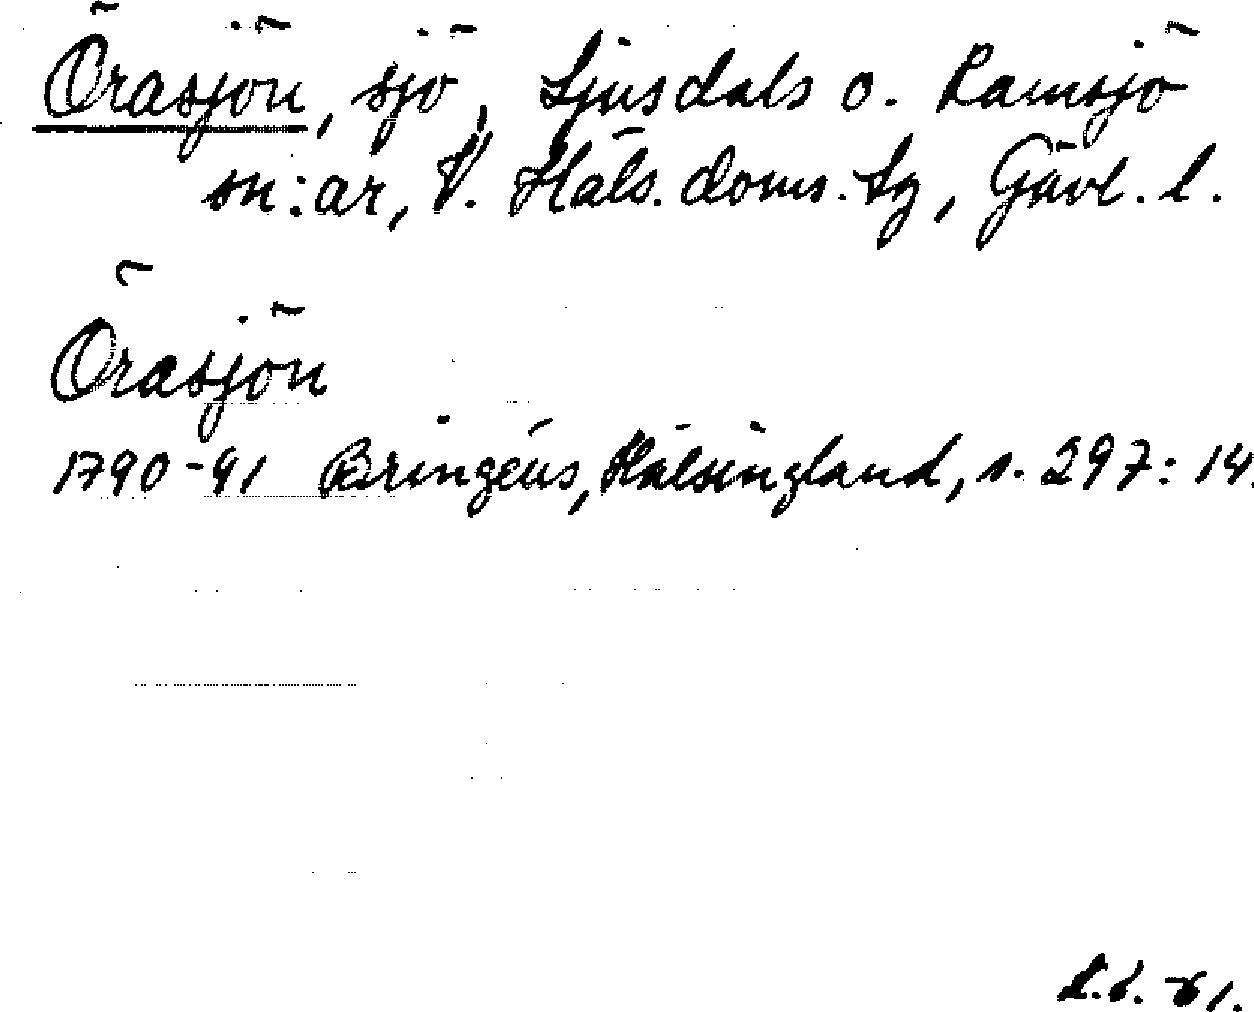 Örasjön, sjö, Ljusdals o. Ramsjö
sn:ar, V. Häls. doms. lg, Gävl. l.
Örasjön
1790-91 Bringéus, Hälsingland, s. 297:14.